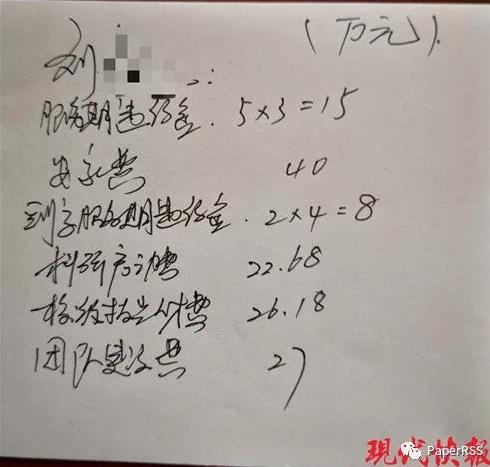 (万元).
刘 :
服务期违约金. 5×3=15
安家费 40
服务期违约金. 2×4=8
科研启动费 22.68
校级 费 26.18
团队建设费 27
现代快报
PaperRSS